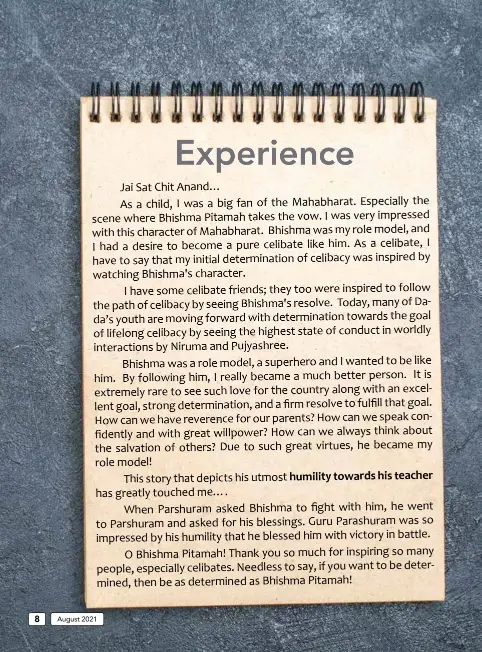 Experience
Jai Sat Chit Anand...
As a child, I was a big fan of the Mahabharat. Especially the
scene where Bhishma Pitamah takes the vow. I was very impressed
with this character of Mahabharat. Bhishma was my role model, and
I had a desire to become a pure celibate like him. As a celibate, I
have to say that my initial determination of celibacy was inspired by
watching Bhishma's character.
I have some celibate friends; they too were inspired to follow
the path of celibacy by seeing Bhishma's resolve. Today, many of Da-
da's youth are moving forward with determination towards the goal
of lifelong celibacy by seeing the highest state of conduct in worldly
interactions by Niruma and Pujyashree.
Bhishma was a role model, a superhero and I wanted to be like
him. By following him, I really became a much better person. It is
extremely rare to see such love for the country along with an excel-
lent goal, strong determination, and a firm resolve to fulfill that goal.
How can we have reverence for our parents? How can we speak con-
fidently and with great willpower? How can we always think about
the salvation of others? Due to such great virtues, he became my
role model!
This story that depicts his utmost humility towards his teacher
has greatly touched me....
When Parshuram asked Bhishma to fight with him, he went
to Parshuram and asked for his blessings. Guru Parashuram was so
impressed by his humility that he blessed him with victory in battle.
O Bhishma Pitamah! Thank you so much for inspiring so many
people, especially celibates. Needless to say, if you want to be deter-
mined, then be as determined as Bhishma Pitamah!
8 August 2021